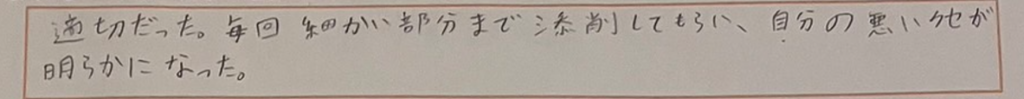 適切だった。毎回 細かい部分まで添削してもらい、自分の悪いクセが
明らかになった。